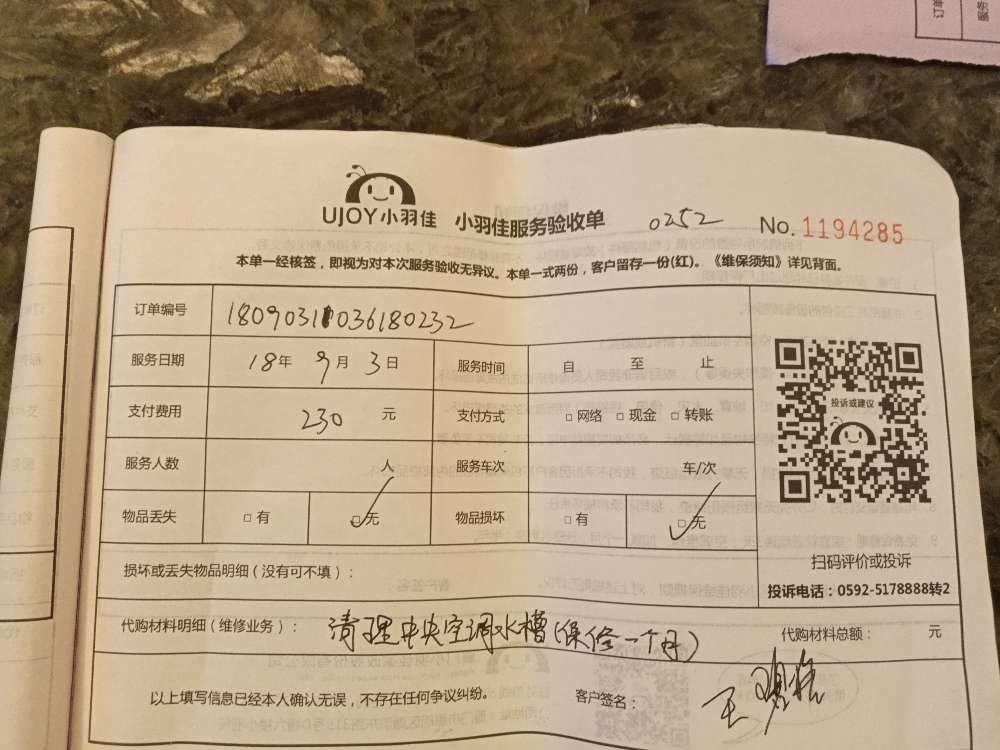 UJOY小羽佳 小羽佳服务验收单 0252 No. 1194285
本单一经核签，即视为对本次服务验收无异议。本单一式两份，客户留存一份(红)。《维保须知》详见背面。
订单编号
服务日期 18年 9月 3日 服务时间 自 至 止
支付费用 230 元 支付方式 □网络 □现金 □转账
投诉或建议
服务人数 人 服务车次 车/次
物品丢失 □有 □无 物品损坏 □有 □无
扫码评价或投诉
损坏或丢失物品明细（没有可不填）：
投诉电话：0592-5178888转2
代购材料明细（维修业务）： 清理中央空调水槽(保修一个月) 代购材料总额： 元
以上填写信息已经本人确认无误，不存在任何争议纠纷。 客户签名： 王